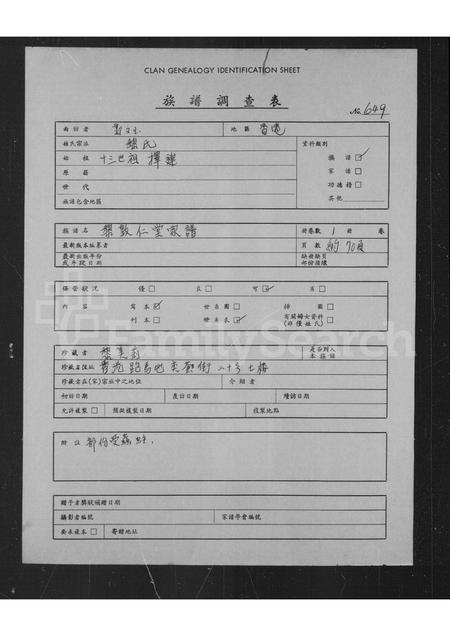 CLAN GENEALOGY IDENTIFICATION SHEET
族譜調查表
No. 649
面訪者 地區 香港
姓氏宗派 黎氏 資料類別
始祖 十三世祖 擇建 族譜 ☑
原籍 家譜 □
世代 功德榜 □
族譜包含地區 其他
譜名 黎敦仁堂家譜 冊卷數 1 冊 卷
最新版本編纂者 頁數 約70頁
最新出版年份 缺冊缺頁
或年號日期 部份損壞
保管狀況 優 □ 良 □ 可 ☑ 劣 □
內容 寫本 ☑ 世系圖 □ 排圖 □
刊本 □ 世系表 ☑ 有關婦女資料 □
(非僅姓氏)
珍藏者 黎 是否別人
珍藏者住址 香港跑馬地 街二十号七樓
珍藏者在(家)宗族中之地位 介紹者
初訪日期 復訪日期 續訪日期
允許複製 □ 預擬複製日期 複製地點
附註 部份受蟲蛀,
贈予者獎狀頒贈日期
攝影者編號 家譜學會編號
要求複本 □ 寄贈地址
FamilySearch